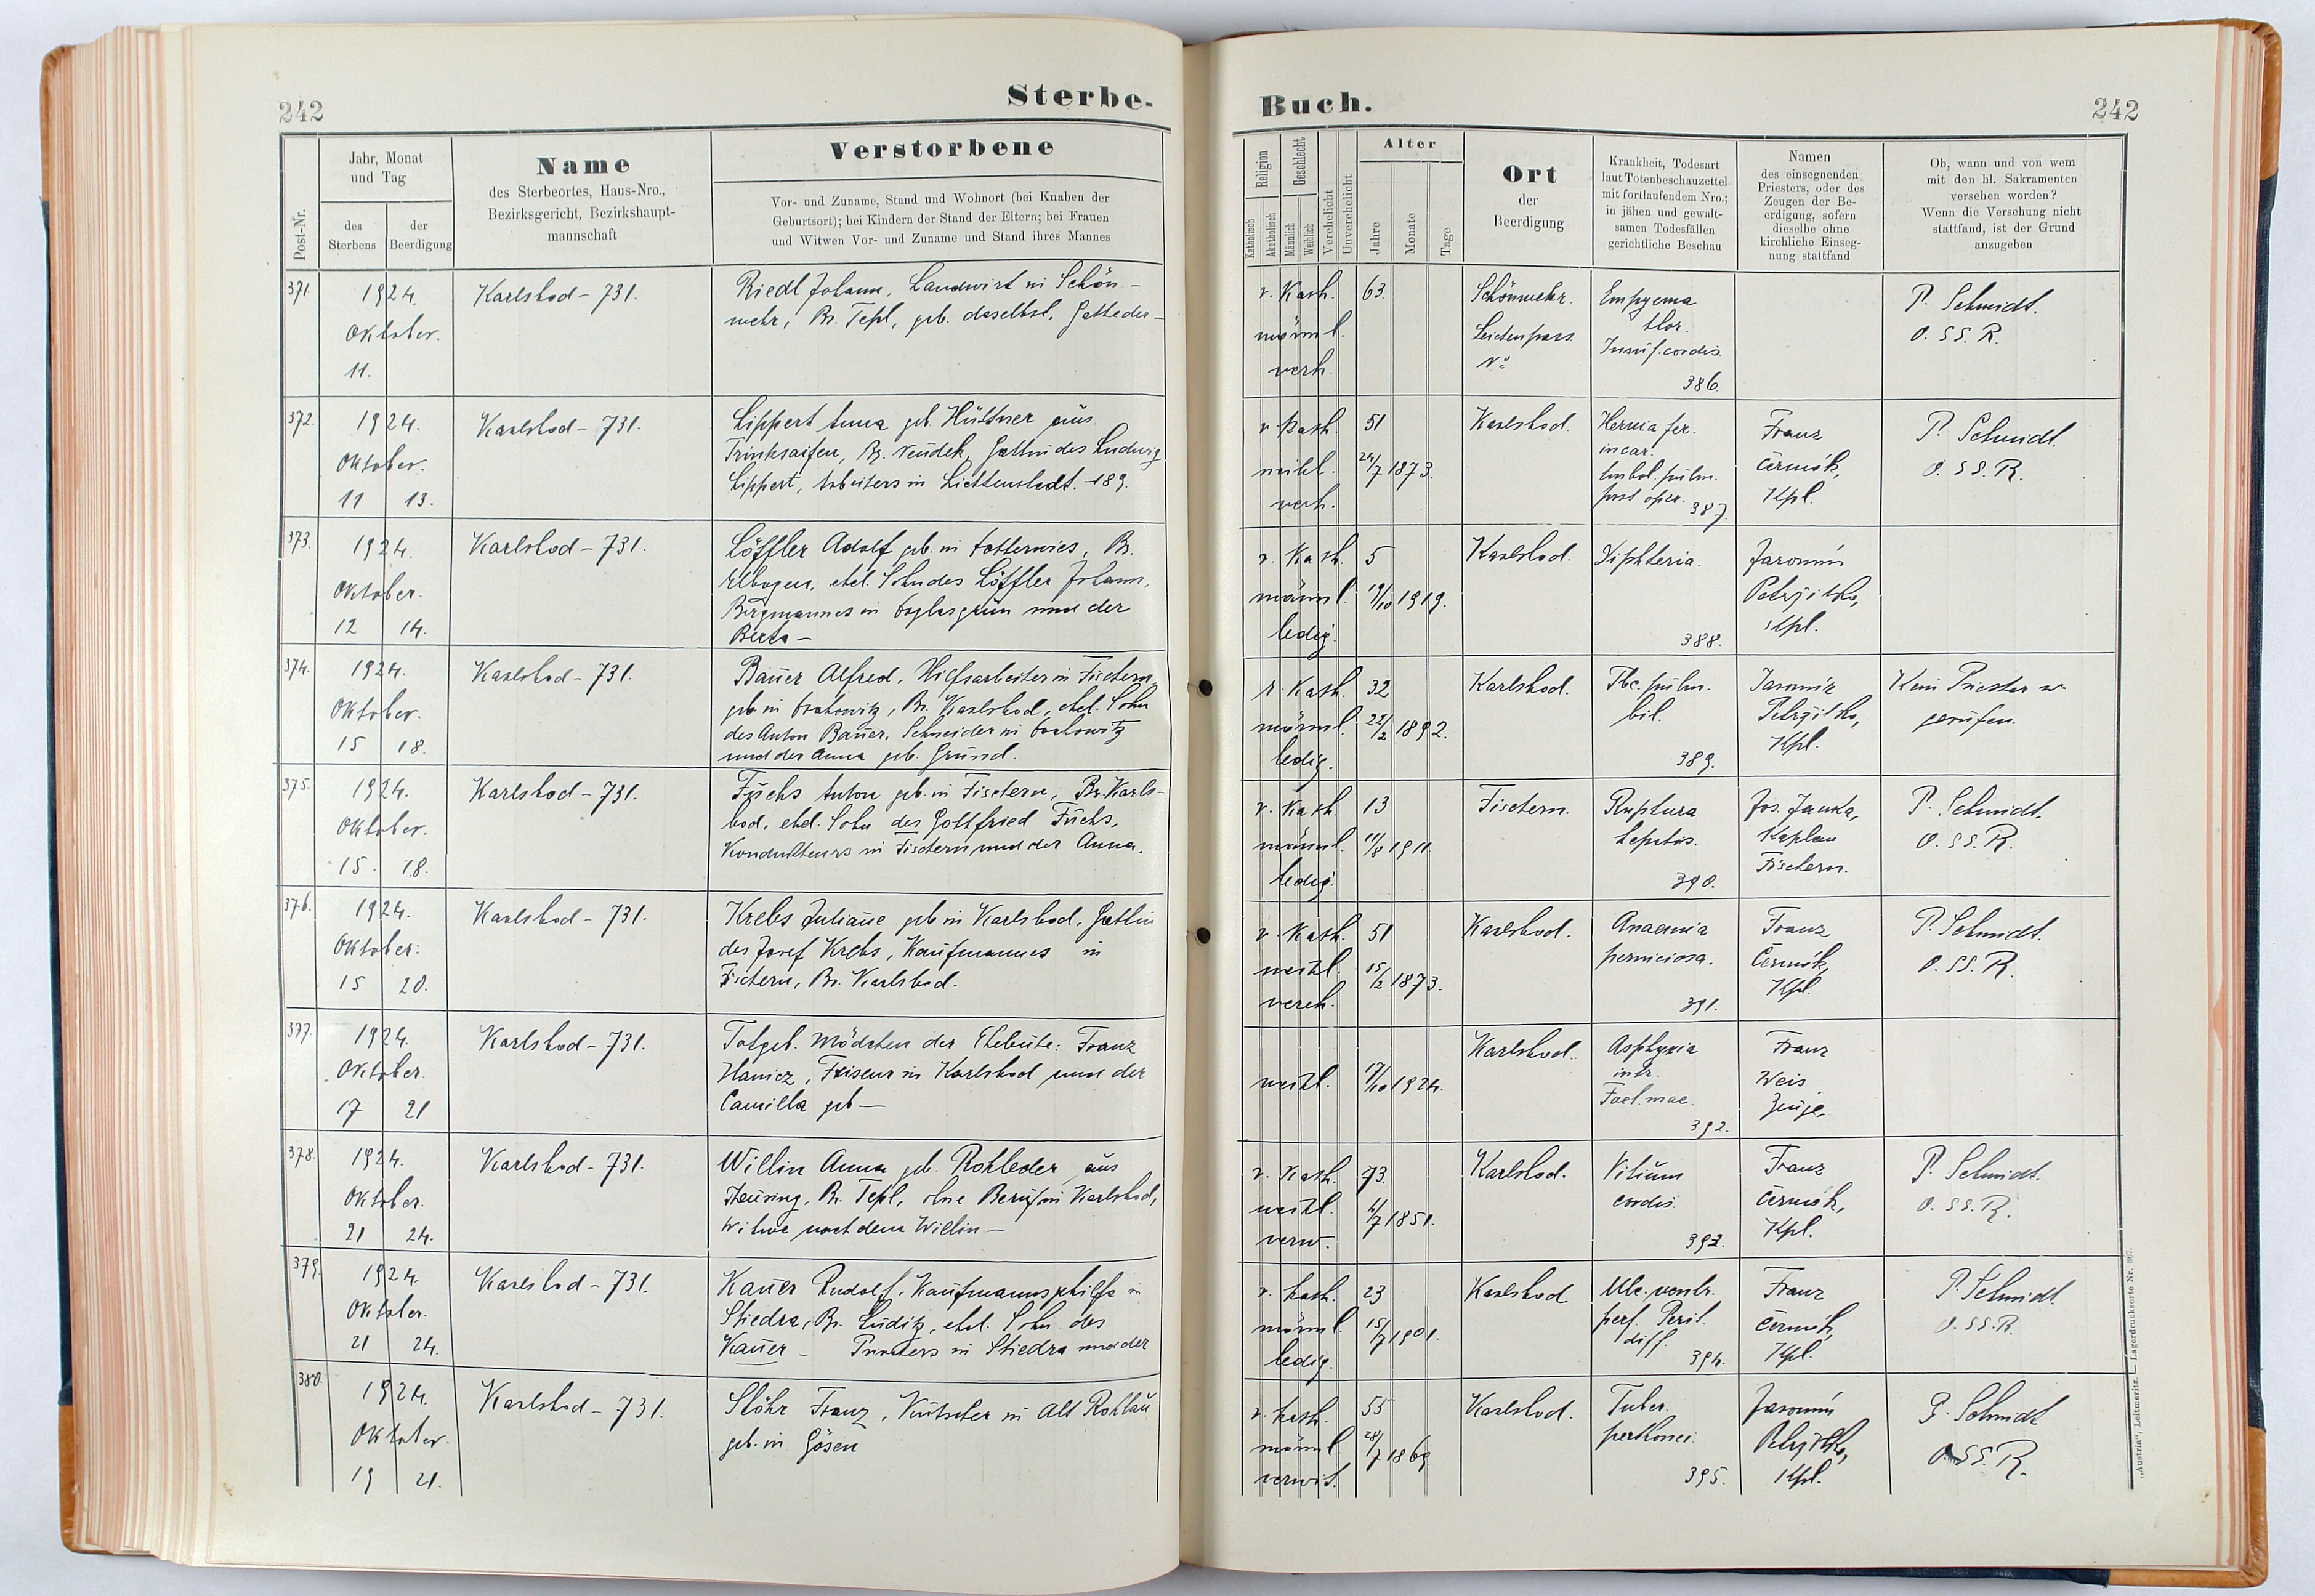 242
Sterbe-
Post-Nr.
Jahr, Monat
und Tag
des
Sterbens
der
Beerdigung
Name
des Sterbeortes, Haus-Nro.,
Bezirksgericht, Bezirkshaupt-
mannschaft
Verstorbene
Vor- und Zuname, Stand und Wohnort (bei Knaben der
Geburtsort); bei Kindern der Stand der Eltern; bei Frauen
und Witwen Vor- und Zuname und Stand ihres Mannes
371.
1924.
Oktober.
11.
Karlsbad - 731.
Riedl Johann, Landwirt in Schön-
wehr, Bz. Tepl, geb. daselbst, Gatte der -
372.
1924.
Oktober.
11 13.
Karlsbad - 731.
Lippert Anna geb. Hüttner aus
Trinksaifen, Bz. Neudek, Gattin des Ludwig
Lippert, Arbeiters in Lichtenstadt. - 189.
373.
1924.
Oktober.
12 14.
Karlsbad - 731.
Löffler Adolf geb. in Bz.
Elbogen, ehel. Sohn des Löffler Johann,
Bergmannes in und der
Berta -
374.
1924.
Oktober.
15 18.
Karlsbad - 731.
Bauer Alfred, Hilfsarbeiter in Fischern,
geb. in Bz. Karlsbad, ehel. Sohn
des Anton Bauer, Schneider in
und der Anna geb. Grund.
375.
1924.
Oktober.
15. 18.
Karlsbad - 731.
Fuchs Anton geb. in Fischern, Bz. Karls-
bad, ehel. Sohn des Gottfried Fuchs,
Kondukteurs in Fischern und der Anna.
376.
1924.
Oktober.
15 20.
Karlsbad - 731.
Krebs Juliane geb. in Karlsbad, Gattin
des Josef Krebs, Kaufmannes in
Fischern, Bz. Karlsbad.
377.
1924.
Oktober.
17 21
Karlsbad - 731.
Totgeb. Mädchen der Eheleute: Franz
Hanicz, Friseur in Karlsbad und der
Camilla geb -
378.
1924.
Oktober.
21 24.
Karlsbad - 731.
Willin Anna geb. Rohleder aus
Theusing, Bz. Tepl, ohne Beruf in Karlsbad,
Witwe nach dem Willin -
379.
1924.
Oktober.
21 24.
Karlsbad - 731.
Kauer Rudolf, Kaufmannsgehilfe in
Stiedra, Bz. Luditz, ehel. Sohn des
Kauer - in Stiedra und der
380.
1924.
Oktober.
19 21.
Karlsbad - 731.
Stöhr Franz, Kutscher in Alt Rohlau
geb. in Gösen
Buch.
242
Religion
Katholisch
Akatholisch
Geschlecht
Männlich
Weiblich
Verehelicht
Unverehelicht
Alter
Jahre
Monate
Tage
Ort
der
Beerdigung
Krankheit, Todesart
laut Totenbeschauzettel
mit fortlaufendem Nro.;
in jähen und gewalt-
samen Todesfällen
gerichtliche Beschau
Namen
des einsegnenden
Priesters, oder des
Zeugen der Be-
erdigung, sofern
dieselbe ohne
kirchliche Einseg-
nung stattfand
Ob, wann und von wem
mit den hl. Sakramenten
versehen worden?
Wenn die Versehung nicht
stattfand, ist der Grund
anzugeben
r. Kath.
männl.
verh.
63.
Schönwehr.
Leichenpass.
No.
Empyema
thor.
Insuf. cordis.
386.
P. Schmidt.
O. SS. R.
r. Kath.
weibl.
verh.
51
24/7 1873.
Karlsbad.
Hernia fer.
incar.
Embol. pulm.
post oper. 387.
Franz
Čermák,
Kpl.
P. Schmidt.
O. SS. R.
r. Kath.
männl.
ledig.
5
19/10 1919.
Karlsbad.
Diphteria.
388.
Jaromír
Petržilka,
Kpl.
r. Kath.
männl.
ledig.
32
22/2 1892.
Karlsbad.
Tbc. pulm.
bil.
389.
Jaromír
Petržilka,
Kpl.
Kein Priester
gerufen.
r. Kath.
männl.
ledig.
13
11/8 1911.
Fischern.
Ruptura
hepatis.
390.
Jos. Janka,
Kaplan
Fischern.
P. Schmidt.
O. SS. R.
r. Kath.
weibl.
vereh.
51
15/2 1873.
Karlsbad.
Anaemia
perniciosa.
391.
Franz
Čermák,
Kpl.
P. Schmidt.
O. SS. R.
weibl.
17/10 1924.
Karlsbad.
Asphyxia
intr.
Foet. mac.
392.
Franz
Weis
Zeuge.
r. Kath.
weibl.
verw.
73.
1851.
Karlsbad.
Vitium
cordis.
393.
Franz
Čermák,
Kpl.
P. Schmidt.
O. SS. R.
r. kath.
männl.
ledig.
23
15/7 1901.
Karlsbad
Ulc. ventr.
perf. Perit.
diff.
394.
Franz
Čermák,
Kpl.
P. Schmidt.
O. SS. R.
r. kath.
männl.
verwit.
55
28/7 1869
Karlsbad.
Tuber.
peritonei.
395.
Jaromír
Petržilka,
Kpl.
P. Schmidt
O. SS. R.
„Austria“, Leitmeritz. — Lagerdrucksorte Nr. 367.